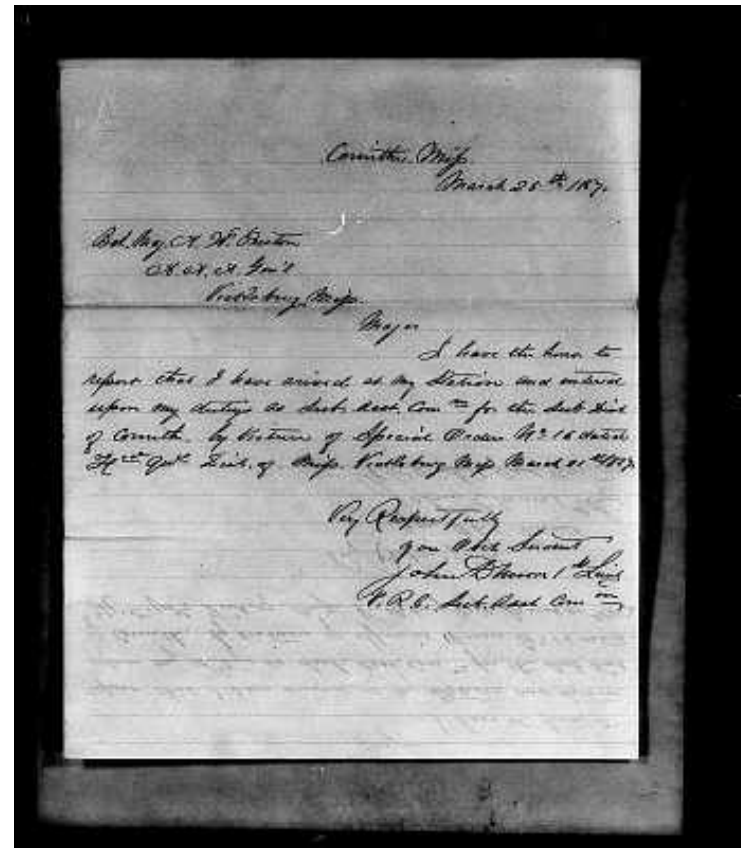 Corinth, Miss
March 25th 187.
Bvt. Maj. A. W. Preston
A. A. A. Gen'l
Vicksburg, Miss.
Major
I have the honor to
report that I have arrived at my Station and entered
upon my dutys as Sub. Asst. Comr for the Sub Dist
of Corinth. by virtue of Special Orders No 16 dated
Hd Qrs Dist. of Miss. Vicksburg Miss March 21st 1867
Very Respectfully
your Obdt Servant
John D. Moore 1st Lieut
V.R.C. Sub. Asst Com